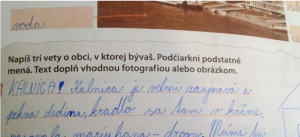 voda
Napíš tri vety o obci, v ktorej bývaš. Podčiarkni podstatné
mená. Text doplň vhodnou fotografiou alebo obrázkom.
KALNICA! Kalnica je veľmi zaujímavá a
pekná dedina, kradlo sa tam v krčme,
marihuana - drogy. Mame tu